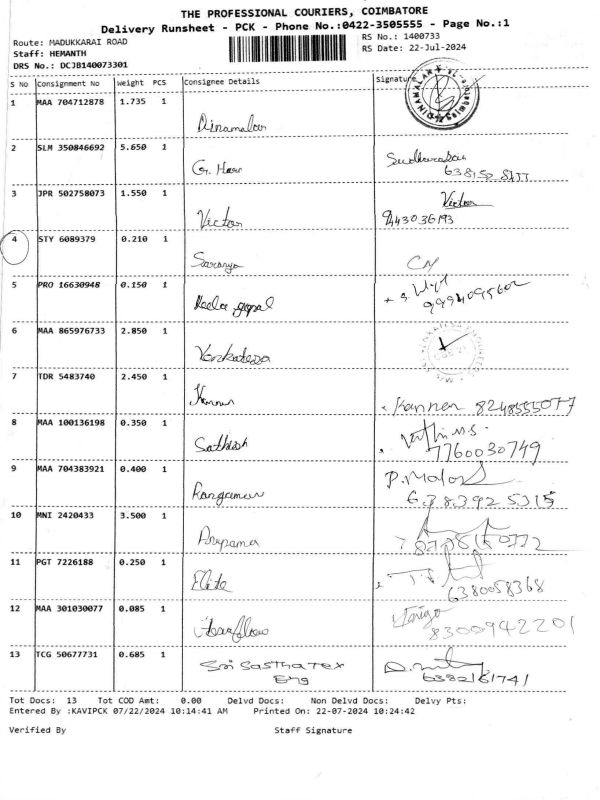 THE PROFESSIONAL COURIERS, COIMBATORE
Delivery Runsheet - PCK - Phone No.:0422-3505555 - Page No.:1
Route: MADUKKARAI ROAD
RS No.: 1400733
Staff: HEMANTH
RS Date: 22-Jul-2024
DRS No.: DCJB140073301
S No Consignment No Weight PCS Consignee Details Signature
1 MAA 704712878 1.735 1
Dinamalar
2 SLM 350846692 5.650 1
G. Hari
3 JPR 502758073 1.550 1
Victor Victor
9443036193
4 STY 6089379 0.210 1
Saranya
5 PRO 16630948 0.150 1
9994095602
6 MAA 865976733 2.850 1
Venkatesa
7 TDR 5483740 2.450 1
Kannan 8248555077
8 MAA 100136198 0.350 1
Sathish 7760030749
9 MAA 704383921 0.400 1
6383925315
10 MNI 2420433 3.500 1
Anupama
11 PGT 7226188 0.250 1
Elite 6380058368
12 MAA 301030077 0.085 1
8300942201
13 TCG 50677731 0.685 1
Sri Sastha Tex
Eng
Tot Docs: 13 Tot COD Amt: 0.00 Delvd Docs: Non Delvd Docs: Delvy Pts:
Entered By :KAVIPCK 07/22/2024 10:14:41 AM Printed On: 22-07-2024 10:24:42
Verified By Staff Signature